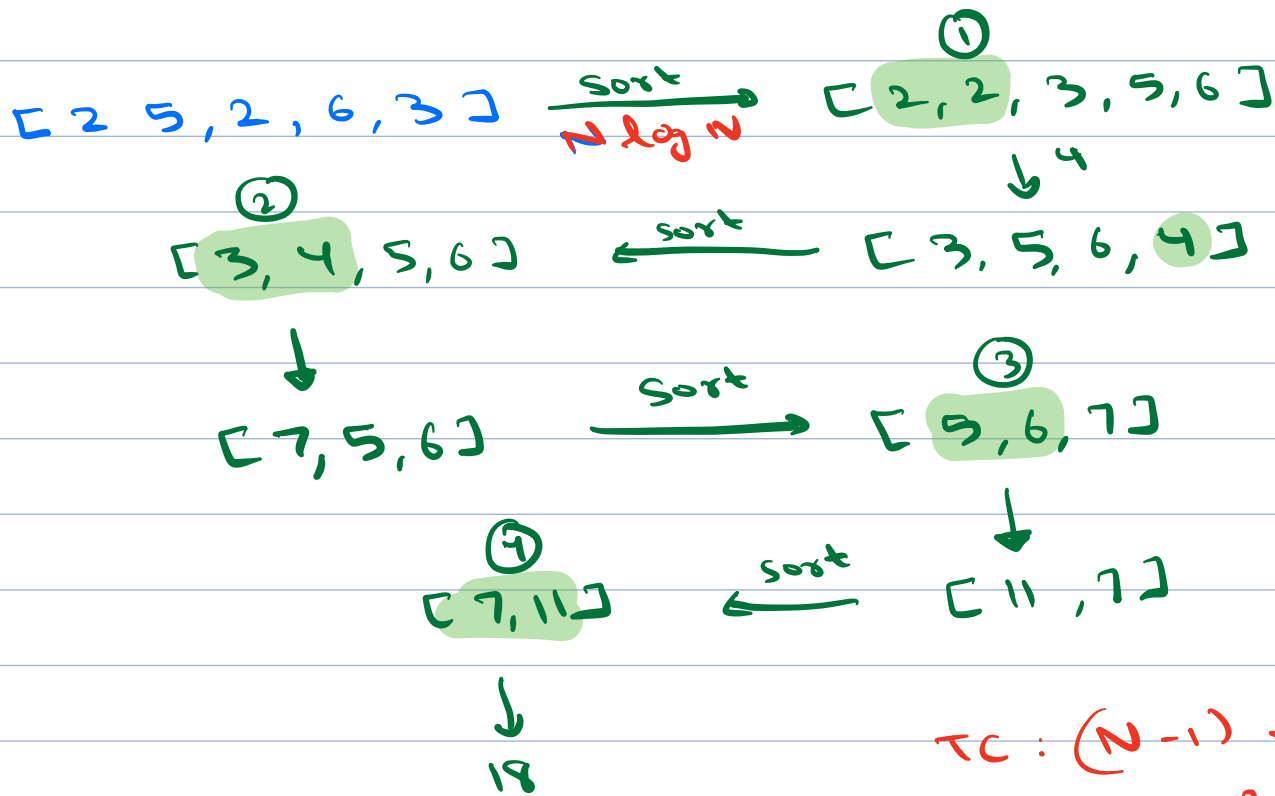 ①
[ 2 5, 2, 6, 3 ] sort N log N [ 2, 2, 3, 5, 6 ]
↓ 4
②
[ 3, 4, 5, 6 ] sort [ 3, 5, 6, 4 ]
↓
③
[ 7, 5, 6 ] sort [ 5, 6, 7 ]
↓
④
[ 7, 11 ] sort [ 11, 7 ]
↓
TC : (N - 1)
18